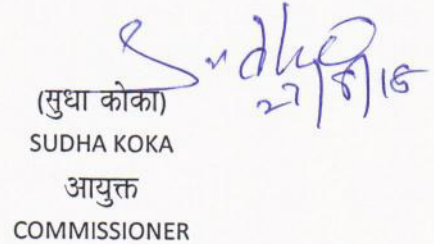 Sudha
(सुधा कोका)
SUDHA KOKA
आयुक्त
COMMISSIONER